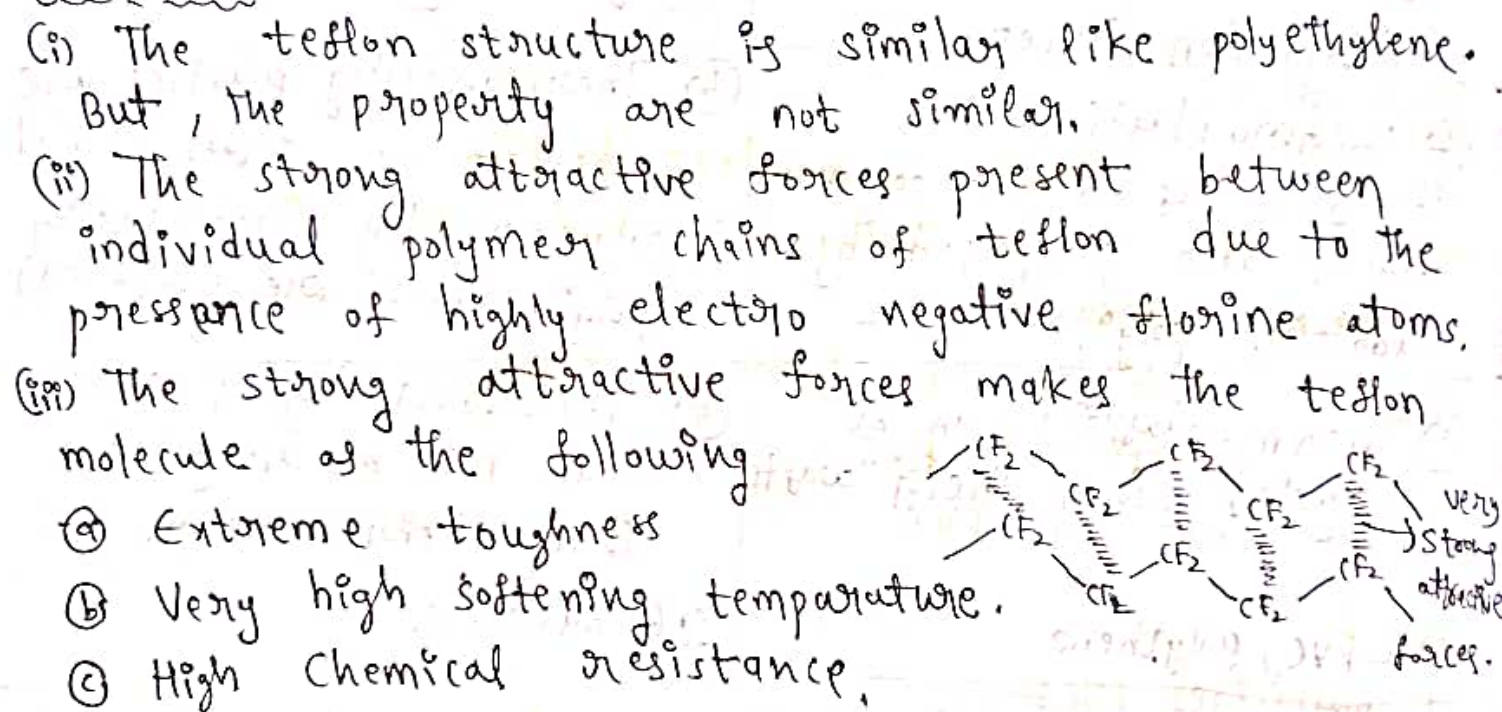 (i) The teflon structure is similar like polyethylene.
But, the property are not similar.
(ii) The strong attractive forces present between
individual polymer chains of teflon due to the
pressance of highly electro negative florine atoms.
(iii) The strong attractive forces makes the teflon
molecule as the following
ⓐ Extreme toughness
ⓑ Very high softening temparature.
ⓒ High Chemical resistance.
CF₂ CF₂ CF₂
CF₂ CF₂
CF₂ CF₂ CF₂
CF₂ CF₂
very
strong
attractive
forces.